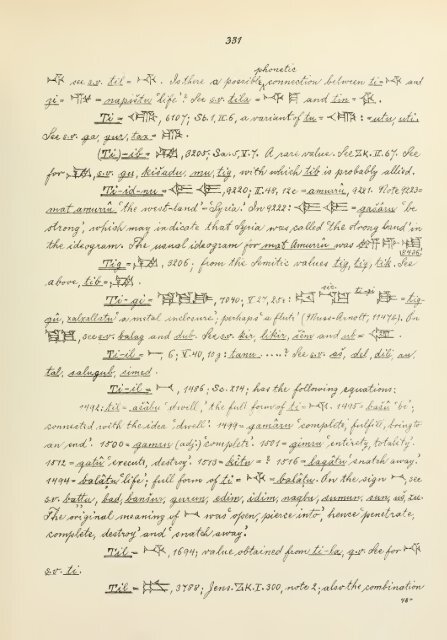 331
phonetic
see s.v. til = 𒋾. Is there a possible connection between ti = 𒋾 and
zi = 𒍣 = napištu 'life'? See s.v. tila = and tin = 𒁷.
Ti = , 6107; Sb. 1, II. 6, a variant of tu = : utu, uti.
See s.v. ga, gur, tax = .
(Ti)-ib = , 3205. Sa. 5, V. 7. A rare value. See ZK. II. 67. See
for , s.v. gu, kišadu, mu, tig, with which tib is probably allied.
Ti-id-nu = , 9220; V. 48, 12c = amurru, 9221. Note 9223 =
mat amurrû 'the west-land' = Syria. In 9222: = gašru 'be
strong', which may indicate that Syria was called 'the strong land' in
the ideogram. The usual ideogram for mat Amurrû was
Tig = , 3206; from the Semitic values tig, tig, tik. See
above, tib = .
sic ti-gi
Ti-gi = , 7040; V. 27, 25b: = tig-
gû, xalxallatu 'a metal inclosure', perhaps 'a flute' (Muss-Arnolt, 1147b). On
, see s.v. balag and dub. See s.v. kir, likir, šêm and ub = .
Ti-il = , 6; V. 40, 10g: tanu .....? See s.v. aš, del, dili, au,
tal, salugub, simed.
Ti-il = , 1486; Sc. 214; has the following equations:
1492: til = ašâbu 'dwell', the full form of ti = 𒋾. 1495 = bašû 'be',
connected with the idea 'dwell'. 1499 = gamâru 'complete, fulfill, bring to
an end'. 1500 = gamru (adj.) 'complete'. 1501 = gimru 'entirety, totality'.
1512 = gatû 'execute, destroy'. 1515 = kêtu = ? 1516 = lagâtu 'snatch away'.
1494 = balâtu 'life'; full form of ti = 𒋾 = balâtu. On the sign , see
s.v. battu, bad, banin, gurun, edim, idim, nagbu, sumun, sun, uš, ze.
The original meaning of was 'open, pierce into', hence 'penetrate,
complete, destroy' and 'snatch away'.
Til = 𒋾, 1694; value obtained from ti-la, q.v. See for 𒋾
s.v. ti.
Til = , 3788; Jens. ZK. I. 300, note 2; also the combination